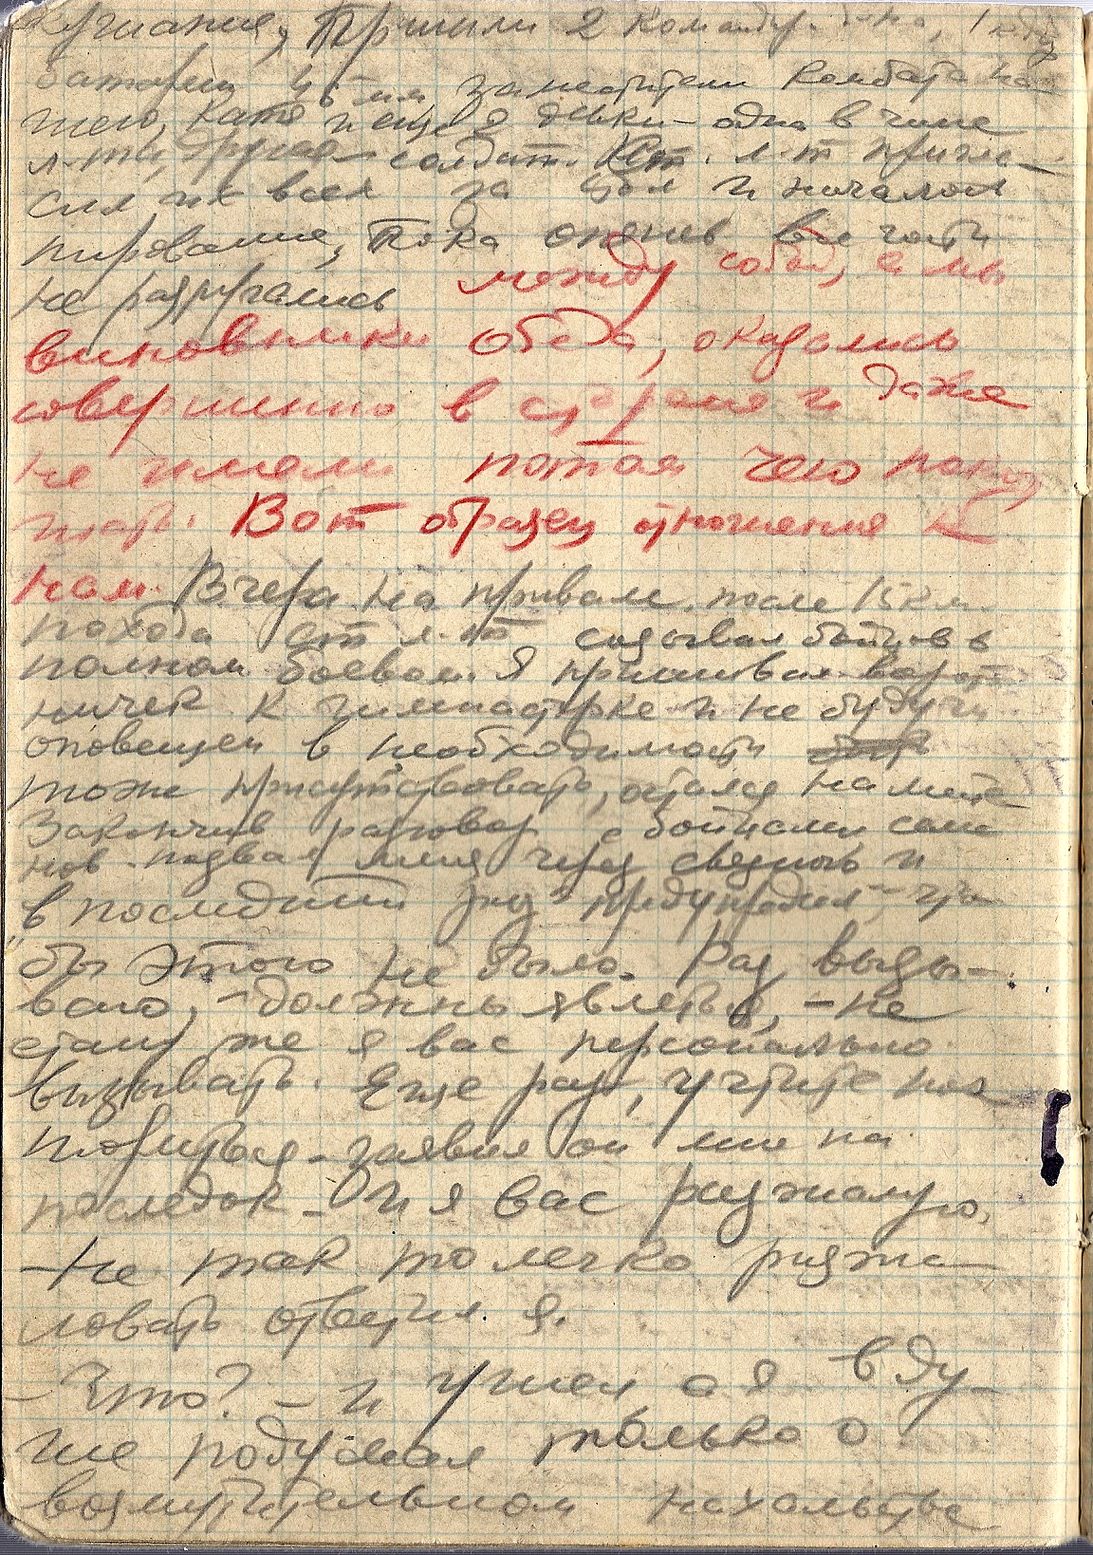 кушания, Пришли 2 командира 1 ком
батареи 45 мм, заместители комбата на
шего, Катя и еще 2 девки – одна в чине
л-та, другая – солдат. Ст. л-т пригла-
сил их всех за стол и началось
пирование, пока опять все гости
не разругались между собой, а мы
виновники обеда, оказались
совершенно в стороне и даже
не имели потом чего поку
шать. Вот образец отношения к
нам. Вчера на привале, после 15 км.
похода ст. л-т созывал бойцов в
полном боевом. Я пришивал ворот
ничек к гимнастерке и не будучи
оповещен в необходимости
тоже присутствовать, остался на месте
Закончив разговор с бойцами Семе
нов позвал меня через связного и
в последний раз "предупредил", что
бы этого не было. Раз вызы-
ваю, – должны явлеться, – не
стану же я вас персонально
вызывать. Еще раз, учтите
повторится – заявил он мне на
последок – и я вас разжалую.
– Не так то легко разжа-
ловать ответил я.
– Что? – и ушел, а я в ду-
ше подумал только о
возмутительном нахальстве